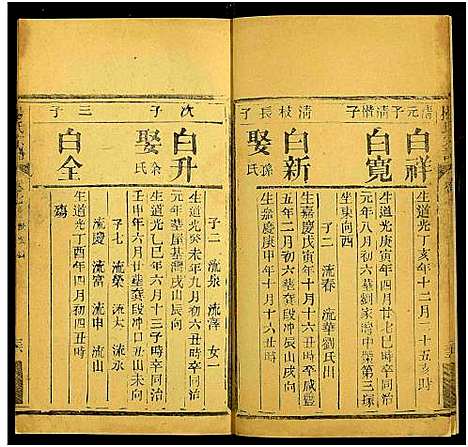 清元子
白祥
生道光丁亥年十二月二十五亥時
清楷子
白寬
生道光庚寅年四月廿七巳時卒同治
元年八月初六葬劉家灣中榮第三塚
坐東向西
子二 流春 流華劉氏出
清枝長子
白新
生嘉慶戊寅年十月十六丑時卒咸豐
五年二月初六丑時葬龔段冲辰山戌向
娶孫氏
生嘉慶庚申年十月十六丑時
子二 流泉 流澤 女一
次子
白升
生道光癸未年九月初六丑時卒同治
元年葬屋基灣戌山辰向
娶余氏
生道光乙巳年六月十三子時卒同治
壬申年六月廿葬龔段冲壬山未向
子七 流榮 流大 流永
流慶 流富 流申 流山
三子
白全
生道光丁酉年四月初四丑時
殤